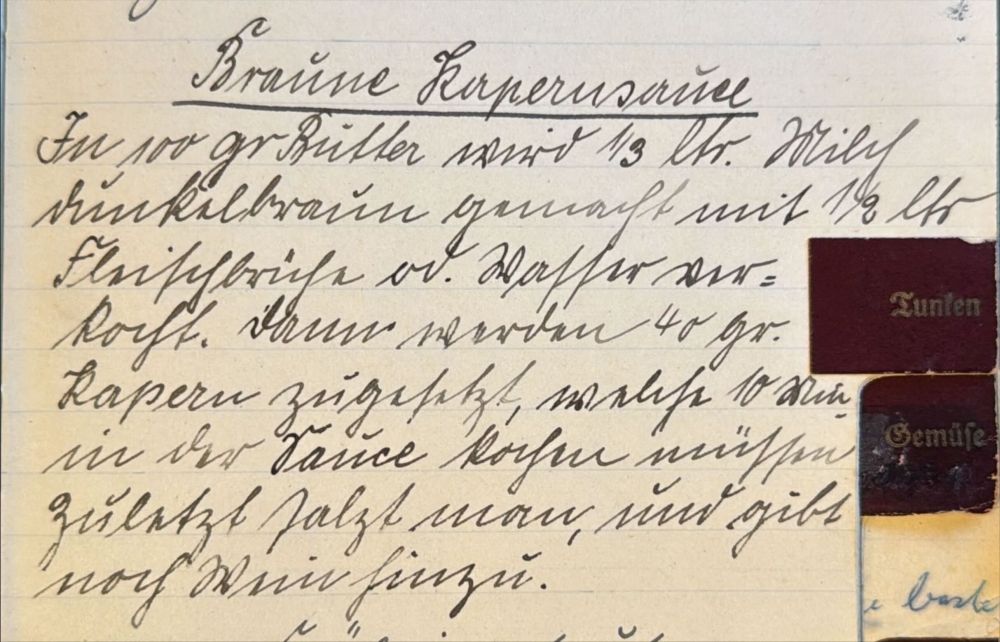 Braune Kapernsauce
In 100 gr Butter wird 1/3 ltr. Milch
dunkelbraun gemacht mit 1/2 ltr
Fleischbrühe od. Wasser ver=
kocht. Dann werden 40 gr.
Kapern zugesetzt, welche 10 Min
in der Sauce kochen müssen
Zuletzt salzt man, und gibt
noch Wein hinzu.
Tunken
Gemüse-